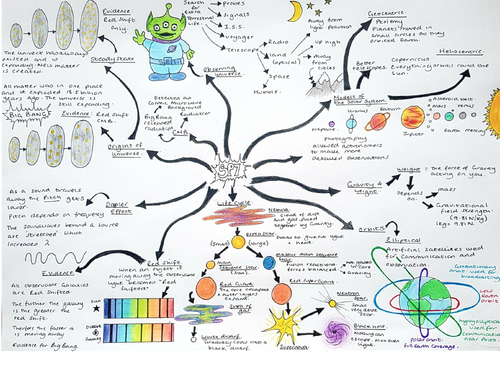 Evidence
Red Shift
Only
Steady State
The universe has always
existed and is
expanding. New matter
is created.
All matter was in one place
and it exploded 13.8 billion
years ago. The universe is
still expanding.
BIG BANG
Evidence: Red Shift
CMB.
Origins of
Universe
Search for
Extra
Terrestrial
Life
Probes
Signals
I.S.S.
Voyager
Telescopes
Radio
Land
(optical)
Space
Hubble.
Observing
Universe
Away from
light Pollution
up high
Away from
cities
Better
telescopes.
Geocentric
Ptolemy
Planets moved in
small circles as they
orbited Earth.
Heliocentric
Copernicus
Everything orbits round the
sun.
Models of the Solar System
Neptune
Uranus
Saturn
Jupiter
Asteroid belt
mars
Earth
mercury
Photography
allowed astronomers
to make more
detailed observations
Cosmic Microwave
Background
Radiation
Big Bang
released
radiation
CMB
SP7
Gravity & weight
Weight
The force of Gravity
acting on you.
Depends
on
mass
Gravitational
field strength
(9.8 N/kg)
Orbits
Elliptical
Artificial satellites used
for Communication and
observation.
Low
Earth
orbit
Polar orbit
full Earth coverage.
As a sound travels
away the Pitch gets
lower
Pitch depends on frequency
The soundwaves around a source
are stretched which
increases λ
Doppler
Effect
Evidence
All observable Galaxies
are Red Shifted
The further the galaxy
is the greater the
Red Shift.
Therefore the faster
is moving away
Evidence for Big Bang
Red Shift
when an object is
moving away the
light becomes "Red
Shifted"
SUN
DISTANT
GALAXY
Life Cycle
Nebula
cloud of dust and gas pulled
together by Gravity.
Protostar
(Small)
(large)
Main
Sequence Star
Red Giant
White dwarf
Gradually cools into a
black dwarf.
Red Super Giant
Supernova
Neutron
Star
Small very
dense star.
Black Hole
Nothing can
escape, not even
light.